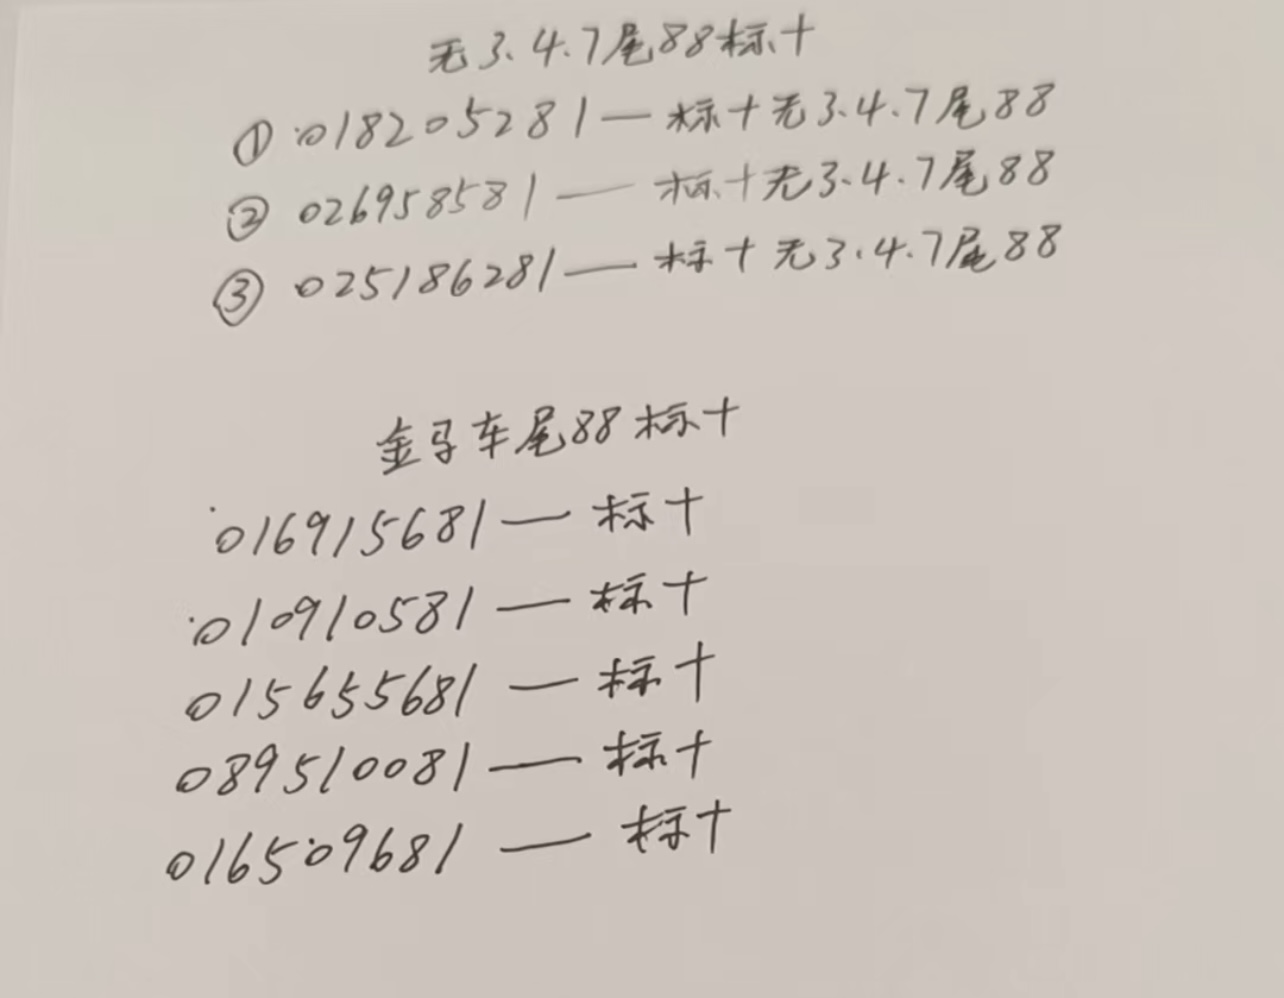 无3.4.7尾88标十
① 018205281一标十无3.4.7尾88
② 026958581一标十无3.4.7尾88
③ 025186281一标十无3.4.7尾88
金马车尾88标十
016915681一标十
010910581一标十
015655681一标十
089510081一标十
016509681一标十